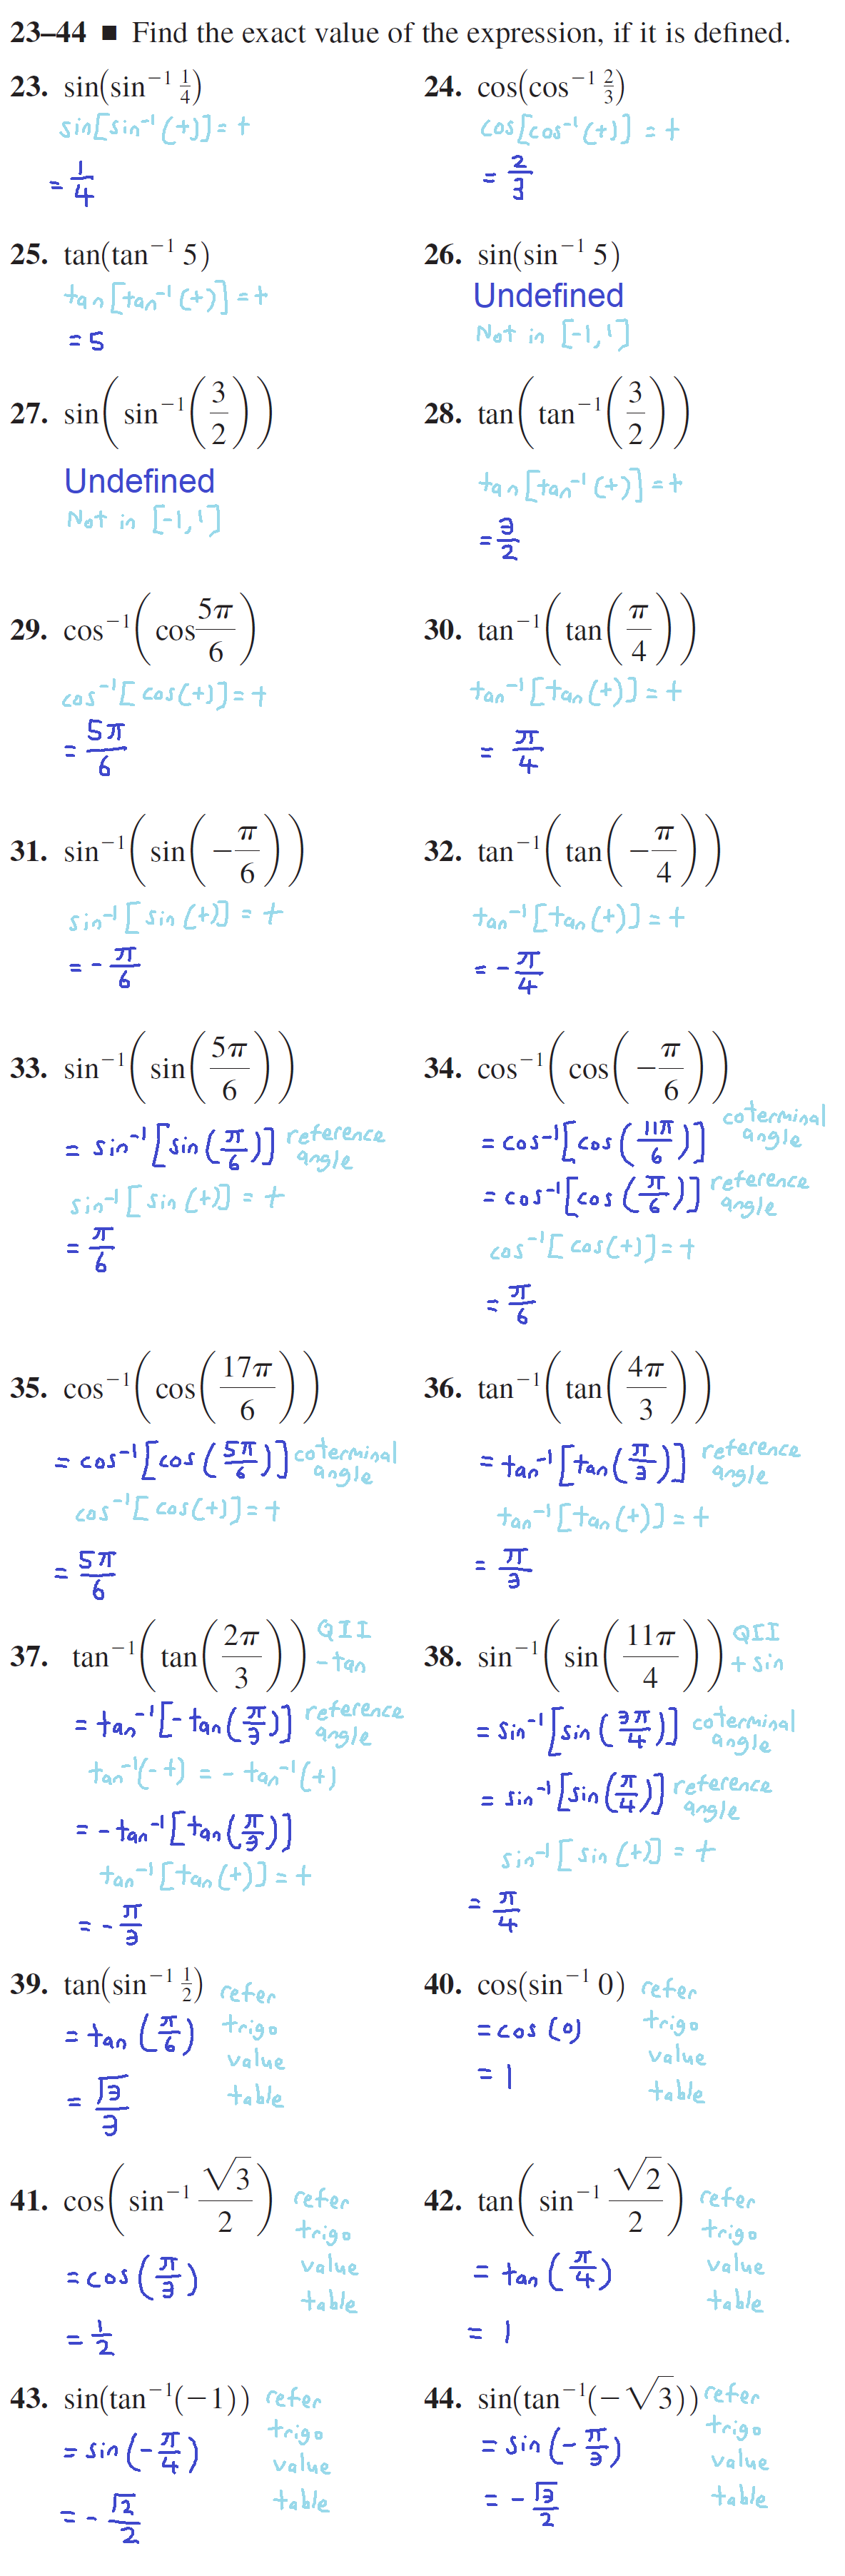 23–44 ■ Find the exact value of the expression, if it is defined.
23. sin(sin⁻¹ 1/4)
sin[sin⁻¹(t)] = t
= 1/4
24. cos(cos⁻¹ 2/3)
cos[cos⁻¹(t)] = t
= 2/3
25. tan(tan⁻¹ 5)
tan[tan⁻¹(t)] = t
= 5
26. sin(sin⁻¹ 5)
Undefined
Not in [-1,1]
27. sin(sin⁻¹(3/2))
Undefined
Not in [-1,1]
28. tan(tan⁻¹(3/2))
tan[tan⁻¹(t)] = t
= 3/2
29. cos⁻¹(cos 5π/6)
cos⁻¹[cos(t)] = t
= 5π/6
30. tan⁻¹(tan(π/4))
tan⁻¹[tan(t)] = t
= π/4
31. sin⁻¹(sin(−π/6))
sin⁻¹[sin(t)] = t
= -π/6
32. tan⁻¹(tan(−π/4))
tan⁻¹[tan(t)] = t
= -π/4
33. sin⁻¹(sin(5π/6))
= sin⁻¹[sin(π/6)] reference angle
sin⁻¹[sin(t)] = t
= π/6
34. cos⁻¹(cos(−π/6))
= cos⁻¹[cos(11π/6)] coterminal angle
= cos⁻¹[cos(π/6)] reference angle
cos⁻¹[cos(t)] = t
= π/6
35. cos⁻¹(cos(17π/6))
= cos⁻¹[cos(5π/6)] coterminal angle
cos⁻¹[cos(t)] = t
= 5π/6
36. tan⁻¹(tan(4π/3))
= tan⁻¹[tan(π/3)] reference angle
tan⁻¹[tan(t)] = t
= π/3
37. tan⁻¹(tan(2π/3)) QII
-tan
= tan⁻¹[-tan(π/3)] reference angle
tan⁻¹(-t) = -tan⁻¹(t)
= -tan⁻¹[tan(π/3)]
tan⁻¹[tan(t)] = t
= -π/3
38. sin⁻¹(sin(11π/4)) QII
+sin
= sin⁻¹[sin(3π/4)] coterminal angle
= sin⁻¹[sin(π/4)] reference angle
sin⁻¹[sin(t)] = t
= π/4
39. tan(sin⁻¹ 1/2) refer
trigo
value
table
= tan(π/6)
= √3/3
40. cos(sin⁻¹ 0) refer
trigo
value
table
= cos(0)
= 1
41. cos(sin⁻¹ √3/2) refer
trigo
value
table
= cos(π/3)
= 1/2
42. tan(sin⁻¹ √2/2) refer
trigo
value
table
= tan(π/4)
= 1
43. sin(tan⁻¹(−1)) refer
trigo
value
table
= sin(-π/4)
= -√2/2
44. sin(tan⁻¹(−√3)) refer
trigo
value
table
= sin(-π/3)
= -√3/2